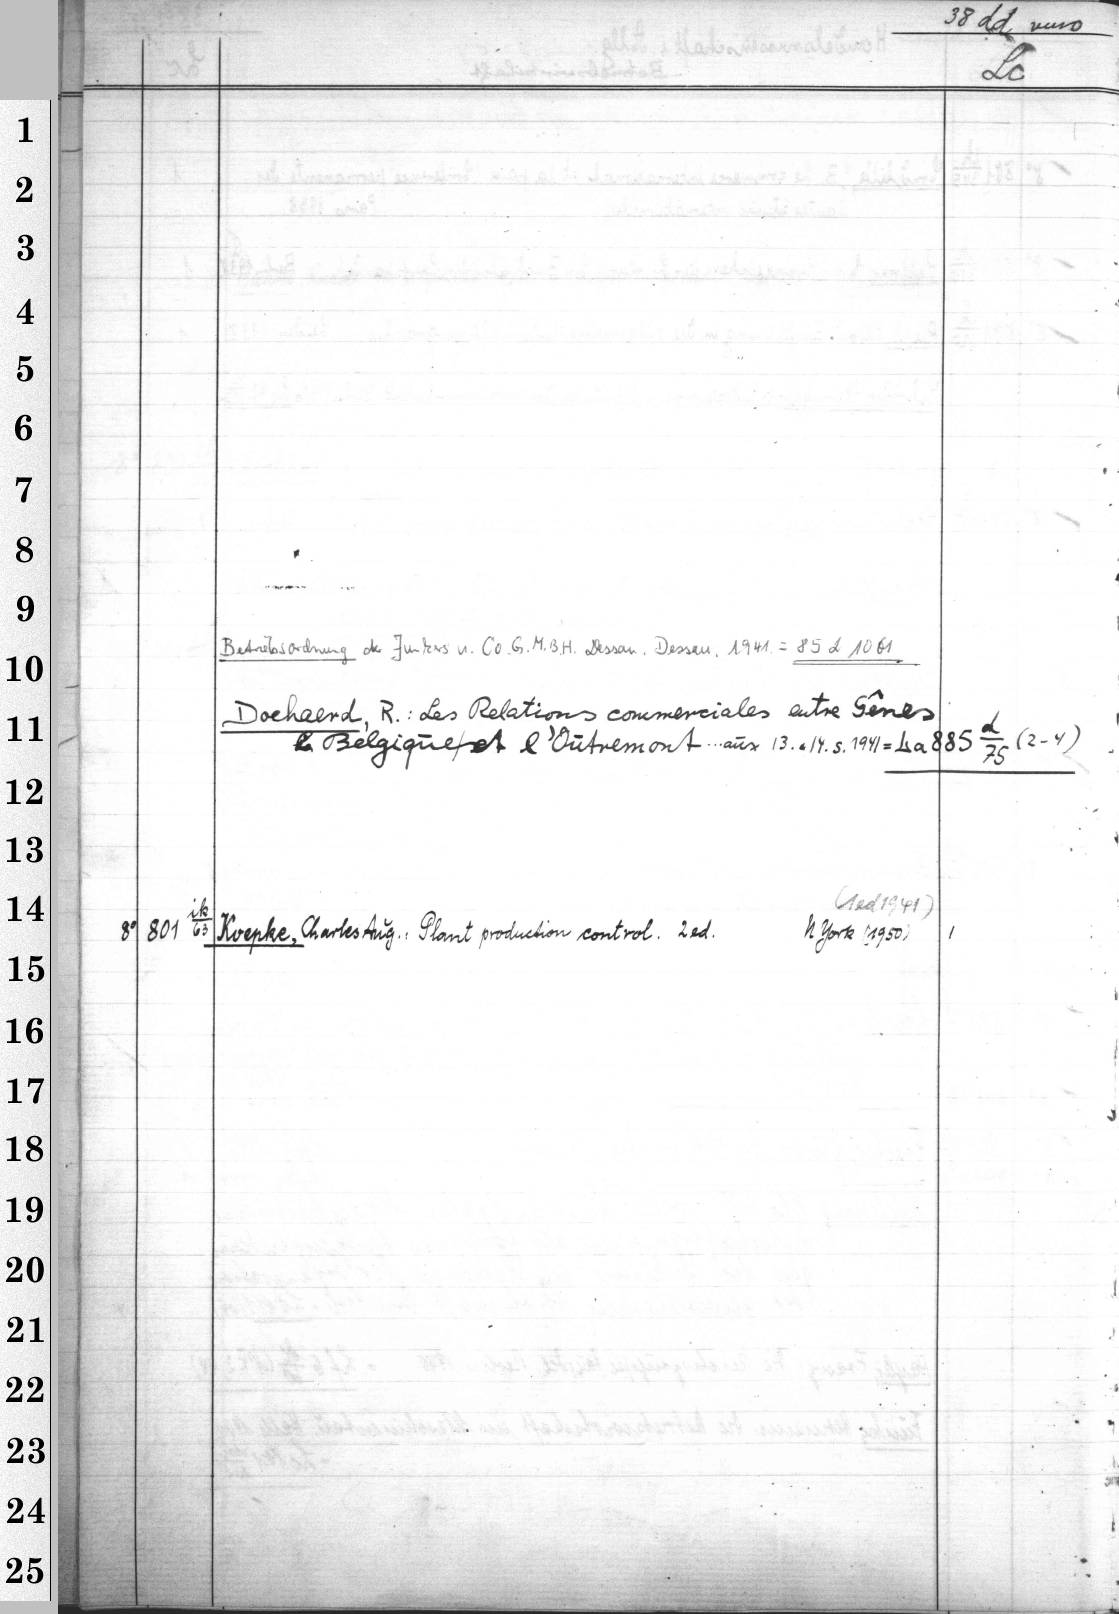 38 dd verso
Lc
1
2
3
4
5
6
7
8
9
Betriebsordnung der Junkers u. Co. G.M.B.H. Dessau. Dessau, 1941. = 85 d 1061
10
Doehaerd, R.: Les Relations commerciales entre Gênes
11
la Belgique et l'Outremont ... aux 13. e 14. s. 1941 = La 885 d/75 (2-4)
12
13
14
(1ed 1941)
8° 801 ik/63 Koepke, Charles Aug.: Plant production control. 2ed. N York (1950) 1
15
16
17
18
19
20
21
22
23
24
25